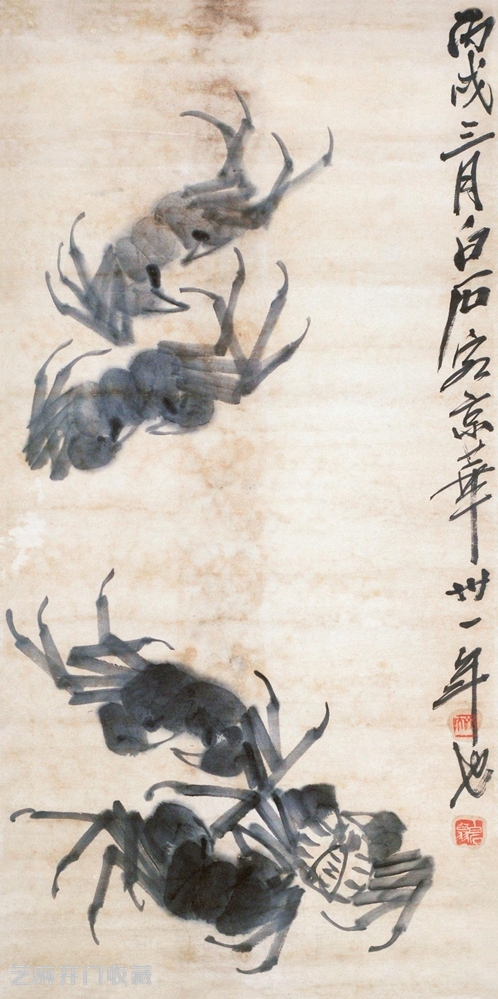 丙戌三月白石客京華卅一年也
艺麻开门收藏